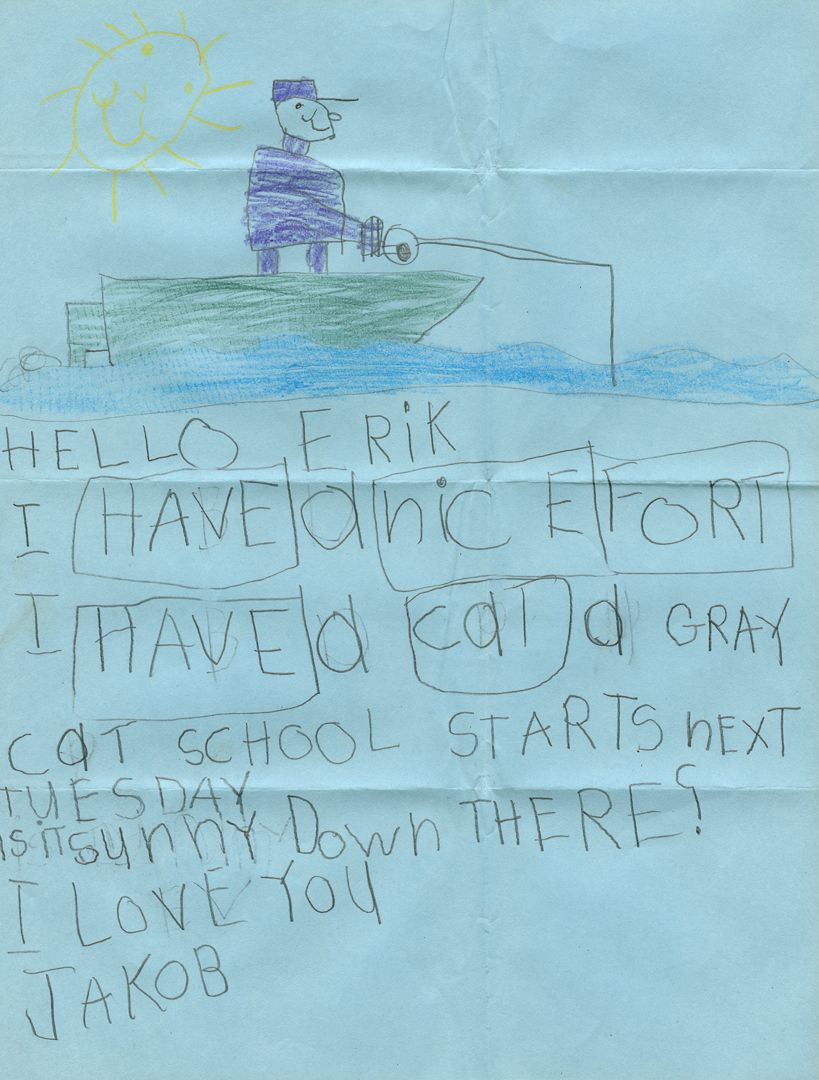 HELLO ERiK
I HAVE a niC E FORT
I HAVE a caT a GRAY
CaT SCHOOL STARTS nEXT
TUESDAY
iS iT SunnY Down THERE?
I LOVE YOU
JAKOB